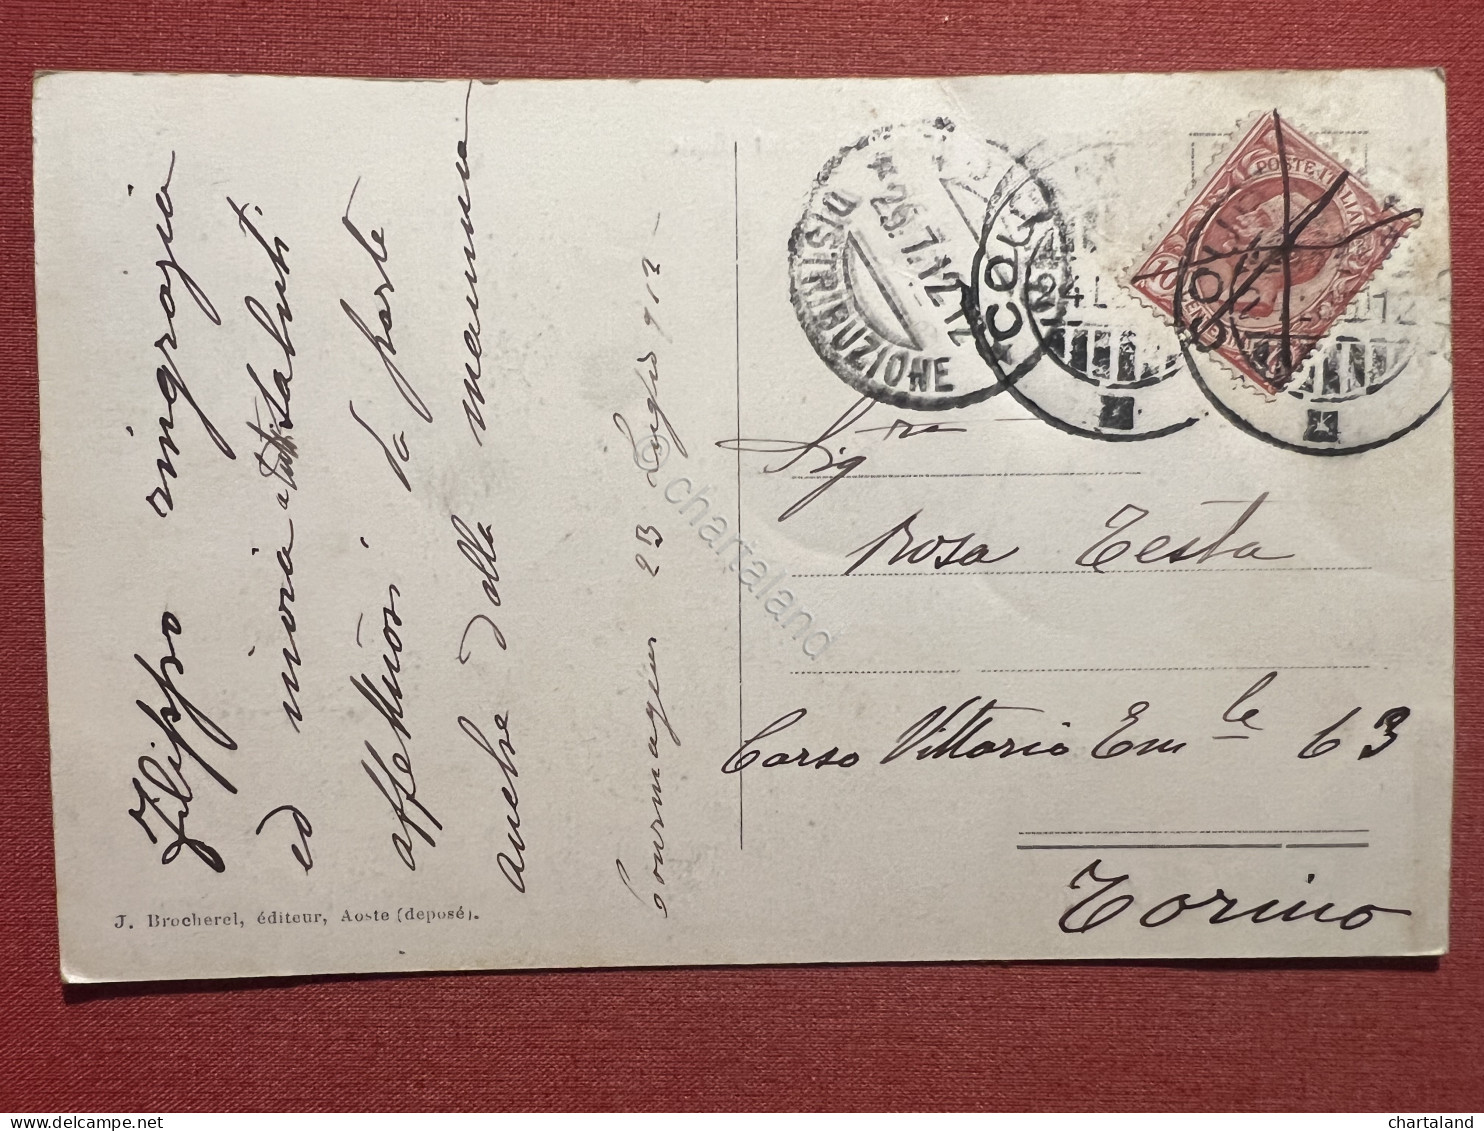 Filippo ringrazia
ed invia a tutti saluti
affettuosi da parte
anche della mamma
Courmayeur 23 Luglio 912
J. Brocherel, éditeur, Aoste (deposé).
DISTRIBUZIONE
25.7.12
24 L
POSTE ITALIANE
10
Sig.ra
Rosa Testa
Corso Vittorio Em.le 63
Torino
chartaland
chartaland
delcampe.net